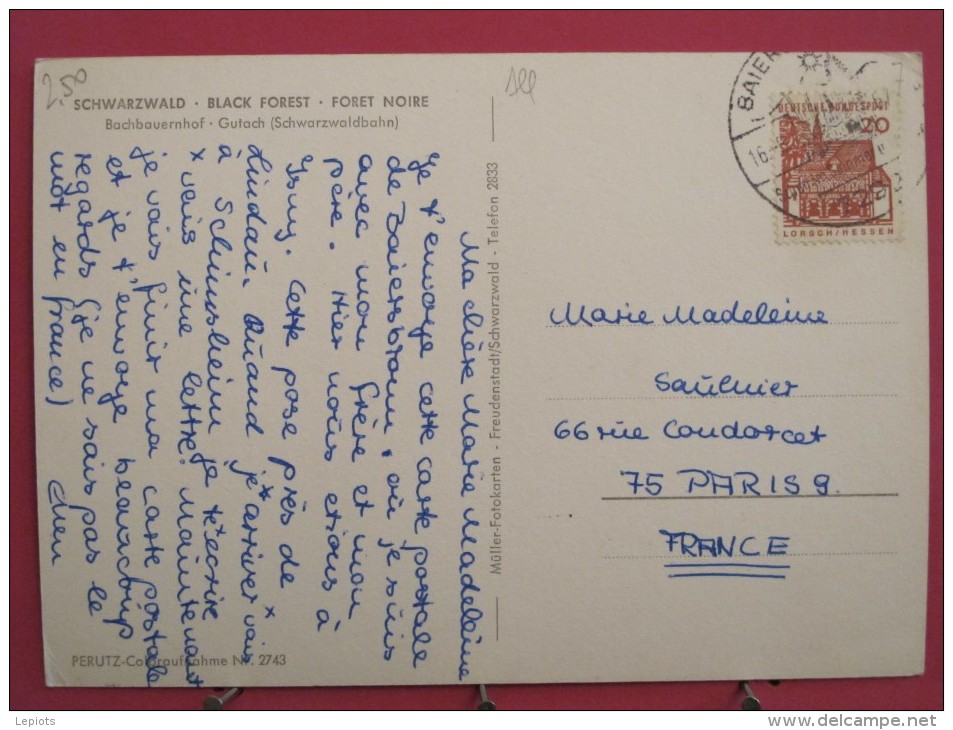 2.50
SCHWARZWALD · BLACK FOREST · FORET NOIRE
Bachbauernhof · Gutach (Schwarzwaldbahn)
Ma chère Marie Madeleine
Je t'envoye cette carte postale
de Baiersbronn, où je suis
avec mon frère et mon
père. Hier nous etions à
Isny. Cette pose près de
Lindau. Quand je* arriver* vais
à Schliersheim je t'ecrire
x vais une lettre. Maintenant
je vais finir ma carte postale
et je t'envoye beaucoup
regards (je ne sais pas le
mot en france)
PERUTZ-Coloraufnahme Nr. 2743
Müller-Fotokarten - Freudenstadt/Schwarzwald - Telefon 2833
BAIER
16.
DEUTSCHE BUNDESPOST
20
LORSCH/HESSEN
Marie Madeleine
Saulnier
66 rue Condorcet
75 PARIS 9.
FRANCE
Lepiots
www.delcampe.net